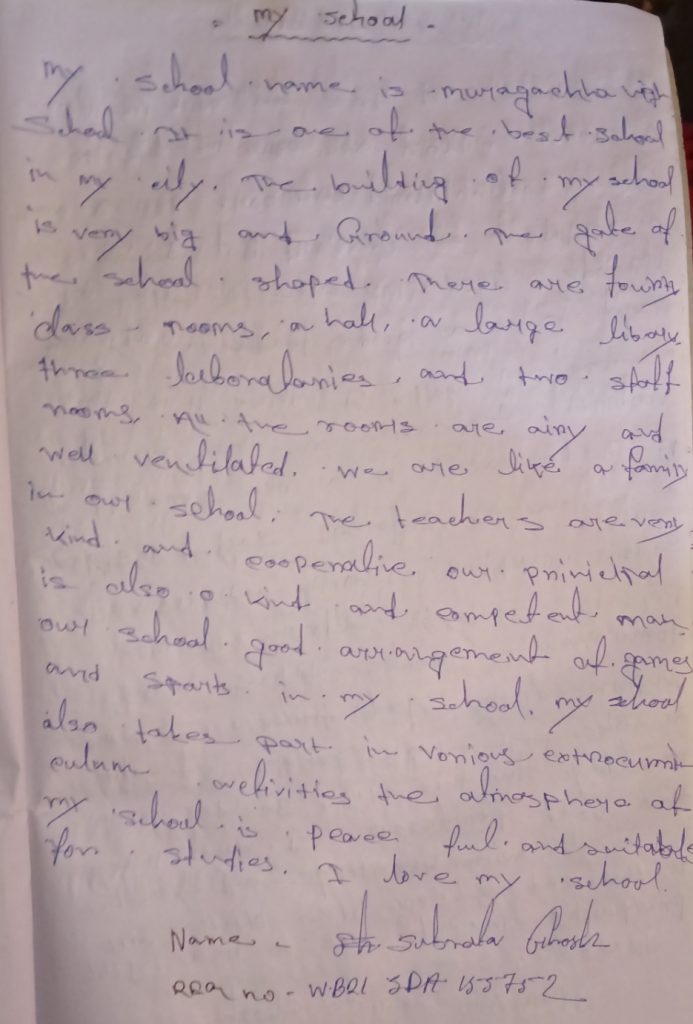 my school
my school name is muragachha high
School. It is one of the best school
in my city. The building of my school
is very big and Ground. The gate of
the school shaped. There are fourty
class rooms, a hall, a large library
three laboratories, and two staff
rooms, All the rooms are airy and
well ventilated. we are like a family
in our school. The teachers are very
kind and cooperative our
is also a kind and competent man
our school good arrangement of games
and sports in my school. my school
also takes part in various extracurri
culum activities the atmosphere of
my school is peace ful and suitable
for studies. I love my school.
Name - Subrata Ghosh
no - WB21 SDA 155752